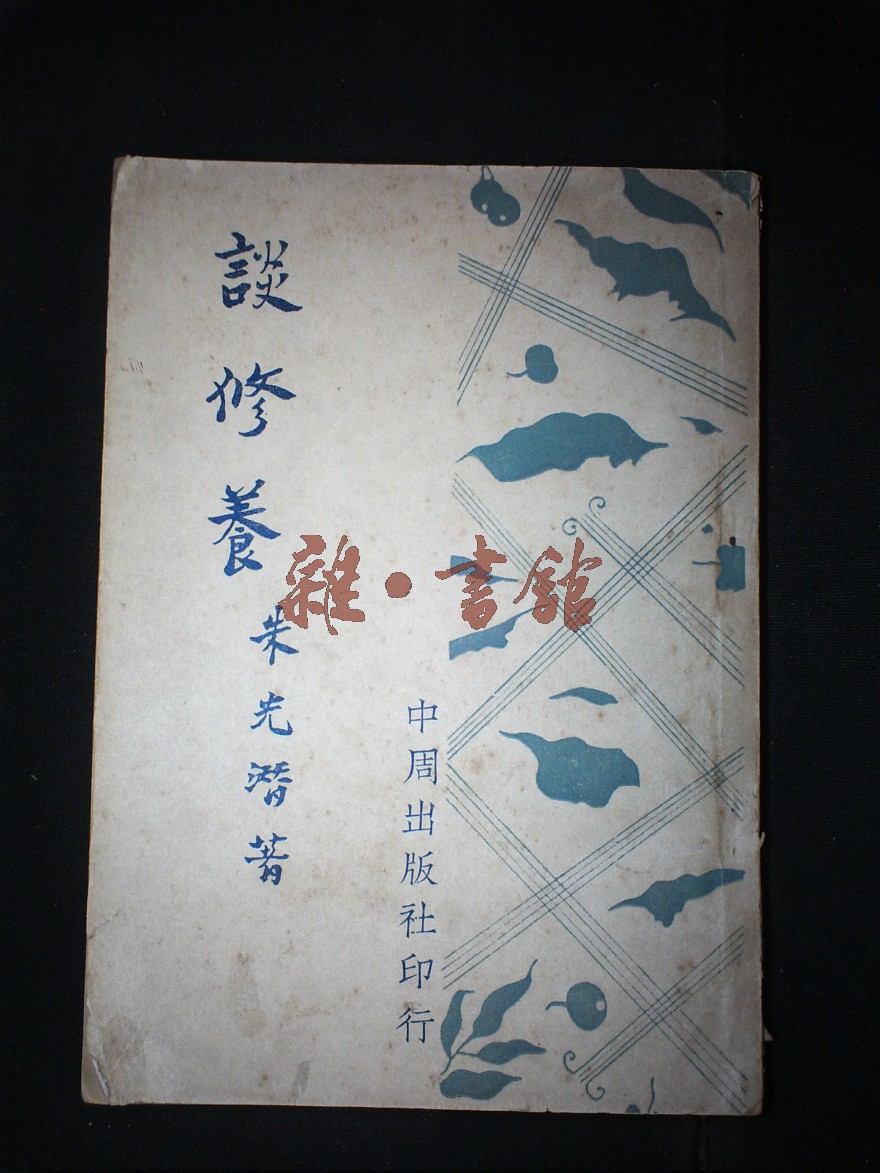 談修養
朱光潛著
中周出版社印行
雜·書館